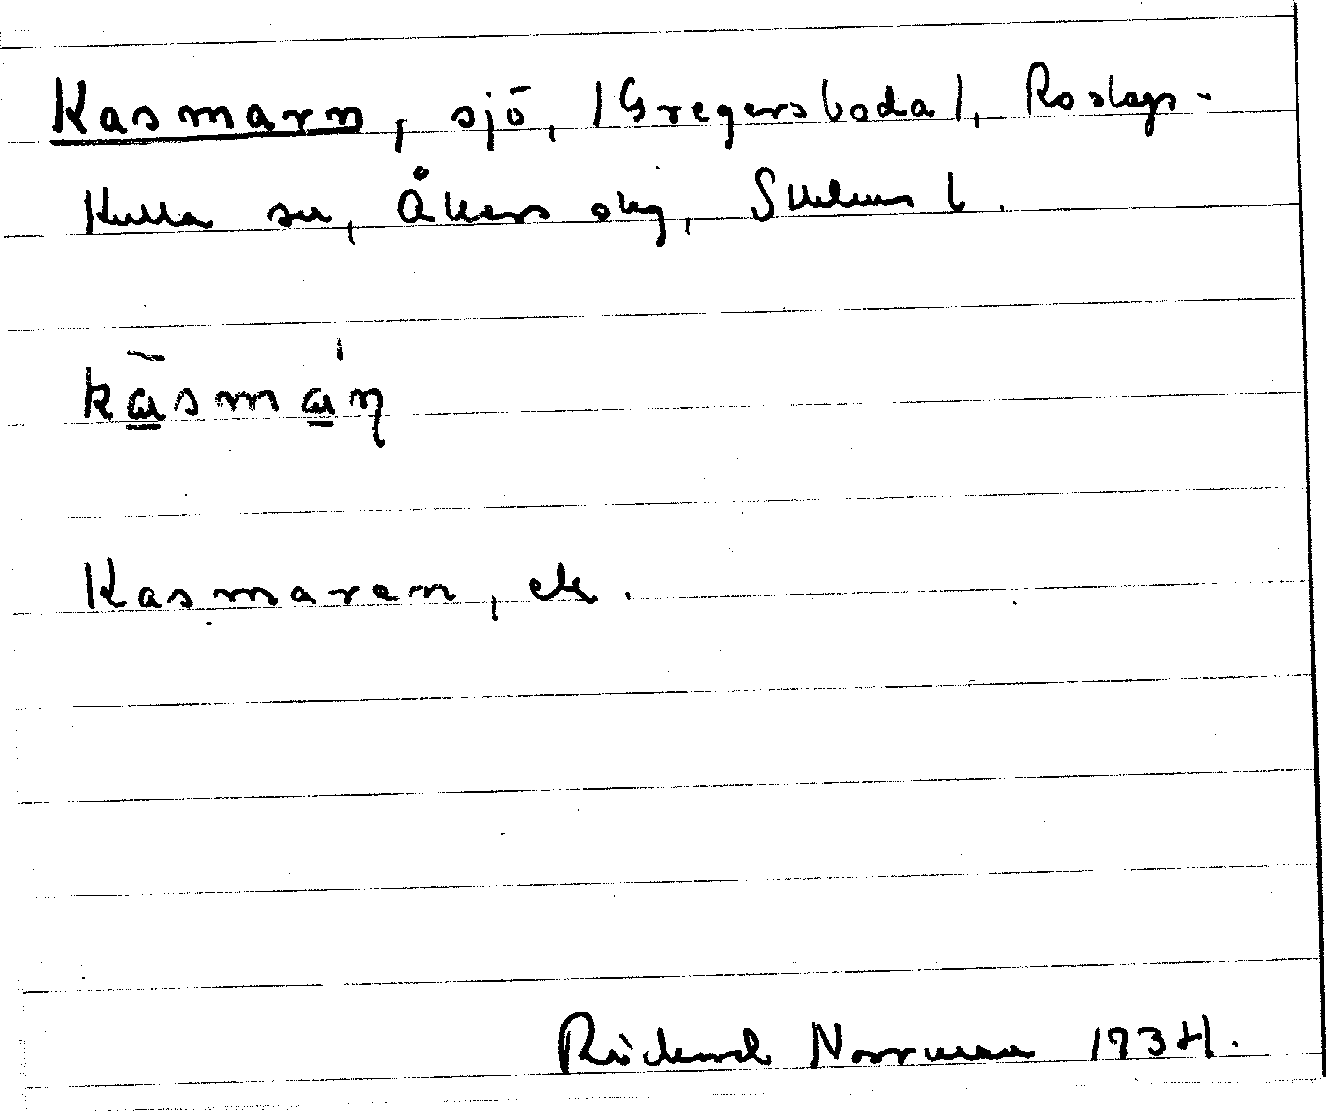 Kasmarn, sjö, /Gregersboda/, Roslags-
Kulla sn, Åkers skg, Sthlms l.
kȧsmȧn
Kasmaren, ek.
Rickard Norrman 1934.